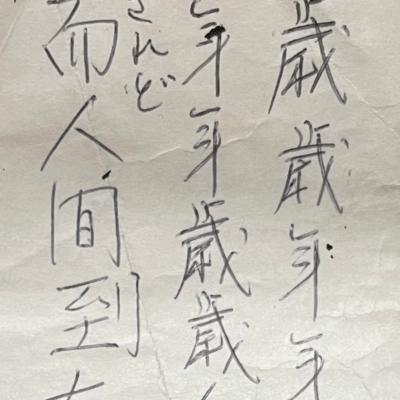 歳歳年年
年年歳歳
されど
而人間到